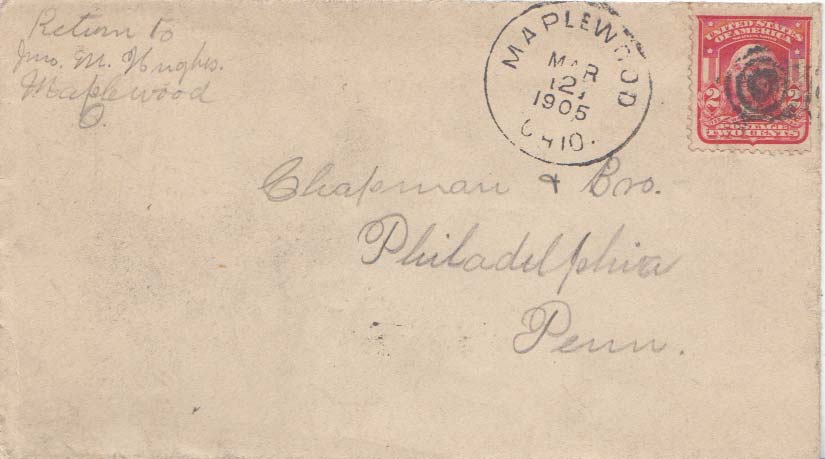 Return to
Jno. M. Hughes.
Maplewood
O.
MAPLEWOOD
MAR
12
1905
OHIO.
UNITED STATES
OF AMERICA
2 2
POSTAGE
TWO CENTS
Chapman & Bro.
Philadelphia
Penn.